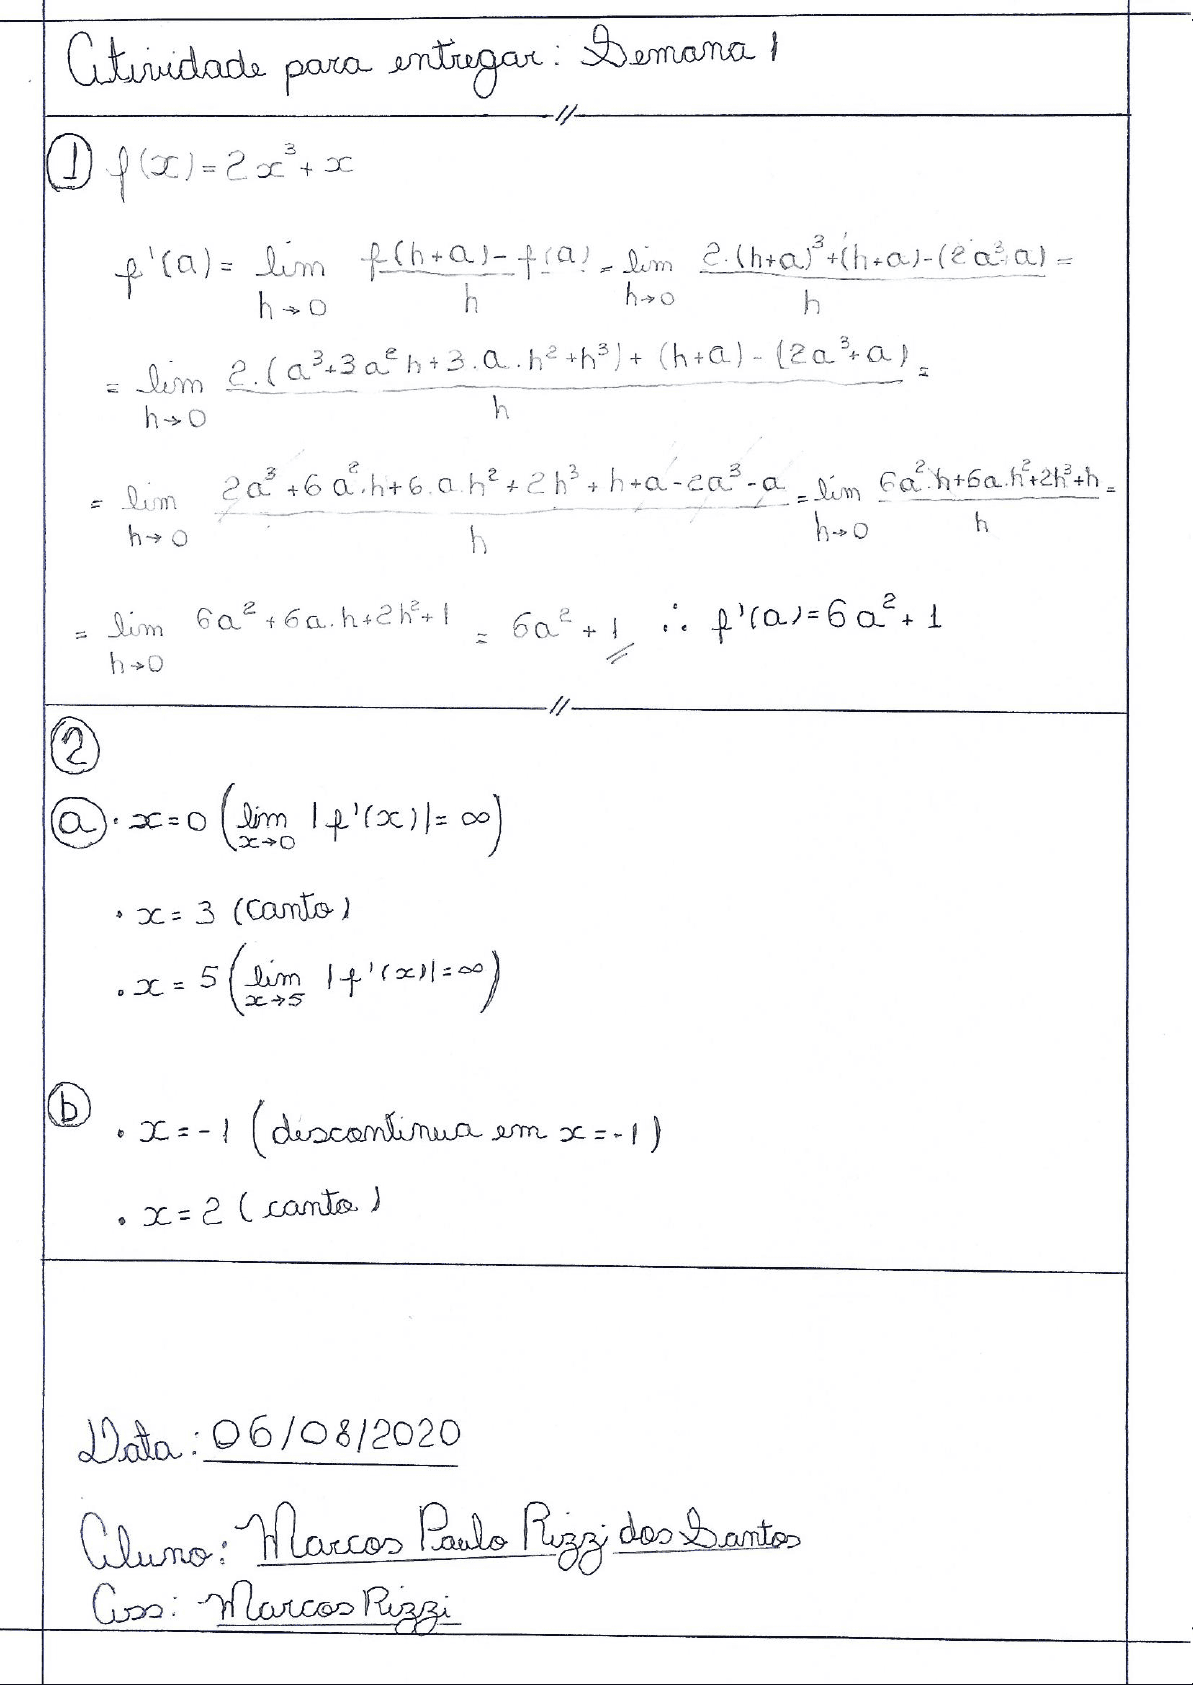 Atividade para entregar: Semana 1
//
① f(x) = 2x³ + x
f'(a) = lim h→0 f(h+a) - f(a) / h = lim h→0 2.(h+a)³+(h+a)-(2a³+a) / h =
= lim h→0 2.(a³+3a²h+3.a.h²+h³) + (h+a) - (2a³+a) / h =
= lim h→0 2a³+6a².h+6.a.h²+2h³+h+a-2a³-a / h = lim h→0 6a².h+6a.h²+2h³+h / h =
= lim h→0 6a²+6a.h+2h²+1 = 6a²+1 ∴ f'(a)=6a²+1
//
②
ⓐ · x=0 (lim x→0 |f'(x)|=∞)
· x=3 (canto)
· x=5 (lim x→5 |f'(x)|=∞)
ⓑ
· x=-1 (discontinua em x=-1)
· x=2 (canto)
Data: 06/08/2020
Aluno: Marcos Paulo Rizzi dos Santos
Ass: Marcos Rizzi